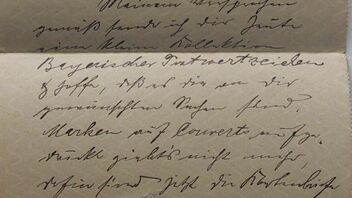 Meinem Versprechen
gemäß sende ich dir heute
eine kleine Kollektion
Bayerischer Postwertzeichen
& hoffe, daß es die von dir
gewünschten Sachen sind.
Marken auf Couverts aufge-
druckt giebt's nicht mehr,
dafür sind jetzt die Kartenbriefe